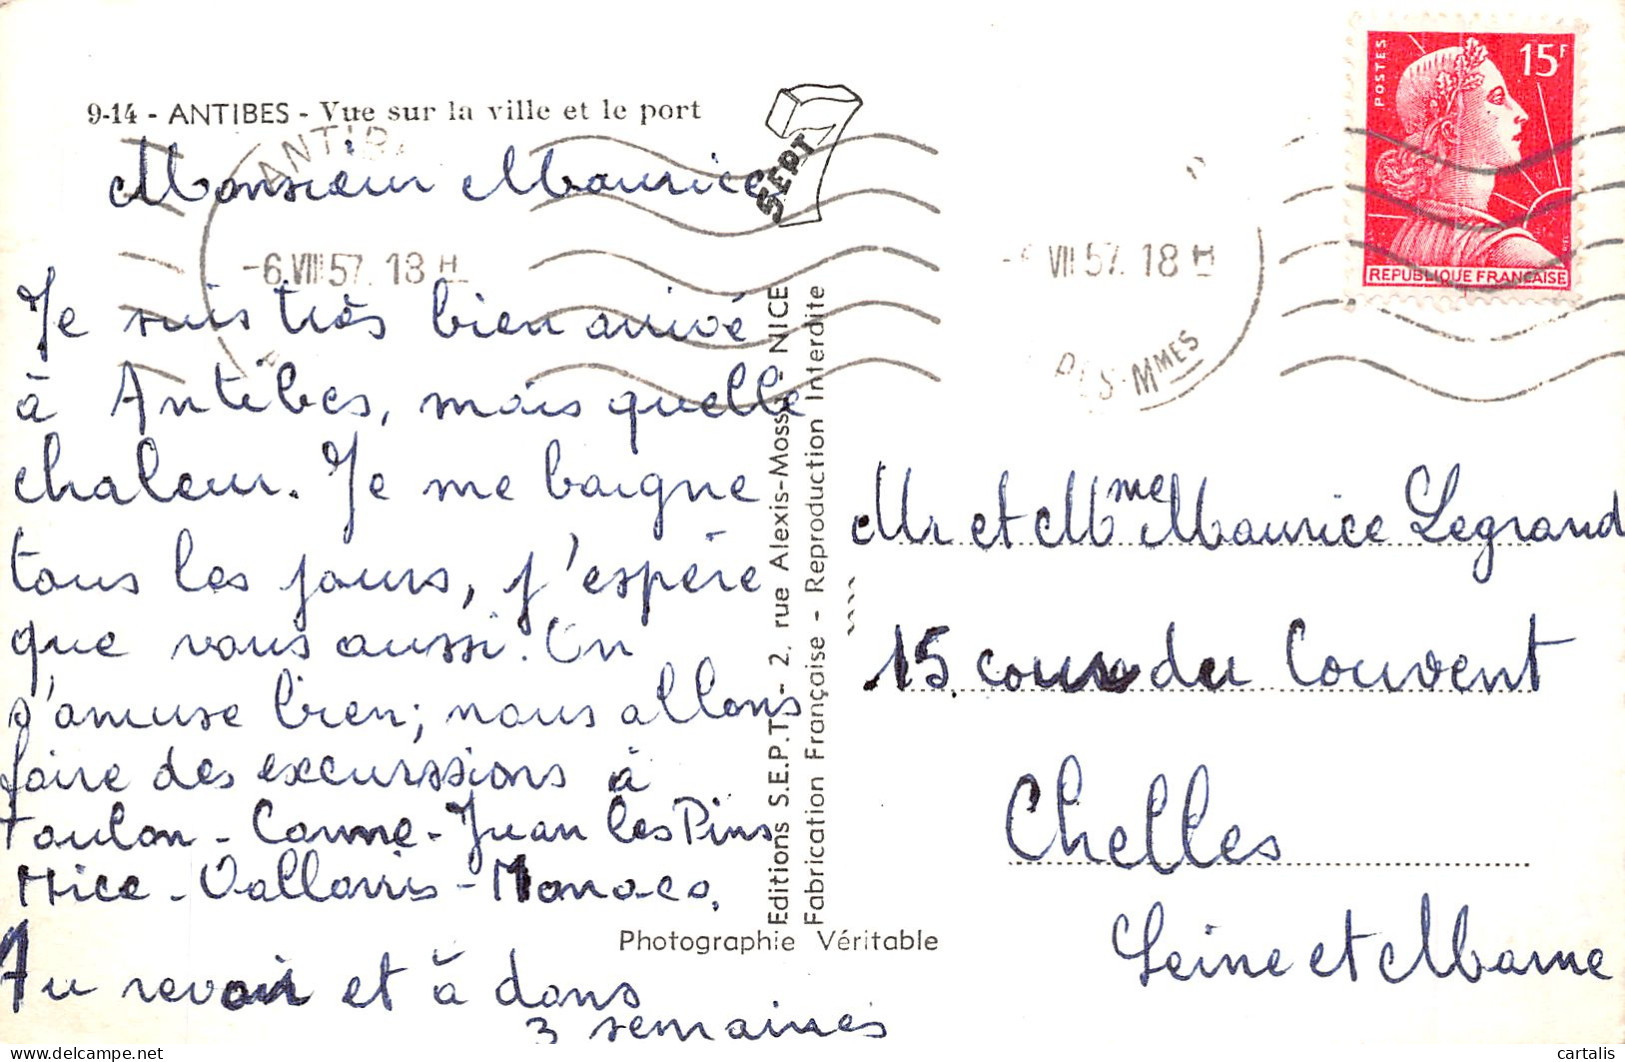 9-14 - ANTIBES - Vue sur la ville et le port
SEPT
Monsieur Maurice
Je suis très bien arrivé
à Antibes, mais quelle
chaleur. Je me baigne
tous les jours, j'espère
que vous aussi. On
s'amuse bien; nous allons
faire des excurssions à
Toulon - Canne - Juan les Pins
Nice - Vallauris - Monaco.
Au revoir et à dans
3 semaines
Editions S.E.P.T. - 2, rue Alexis-Mossa - NICE
Fabrication Française - Reproduction Interdite
Photographie Véritable
ANTIB
-6.VIII 57. 18 H
VIII 57. 18 H
DES-MMES
POSTES
15F
REPUBLIQUE FRANÇAISE
Mr et Mme Maurice Legrand
15. cour du Couvent
Chelles
Seine et Marne
cartalis